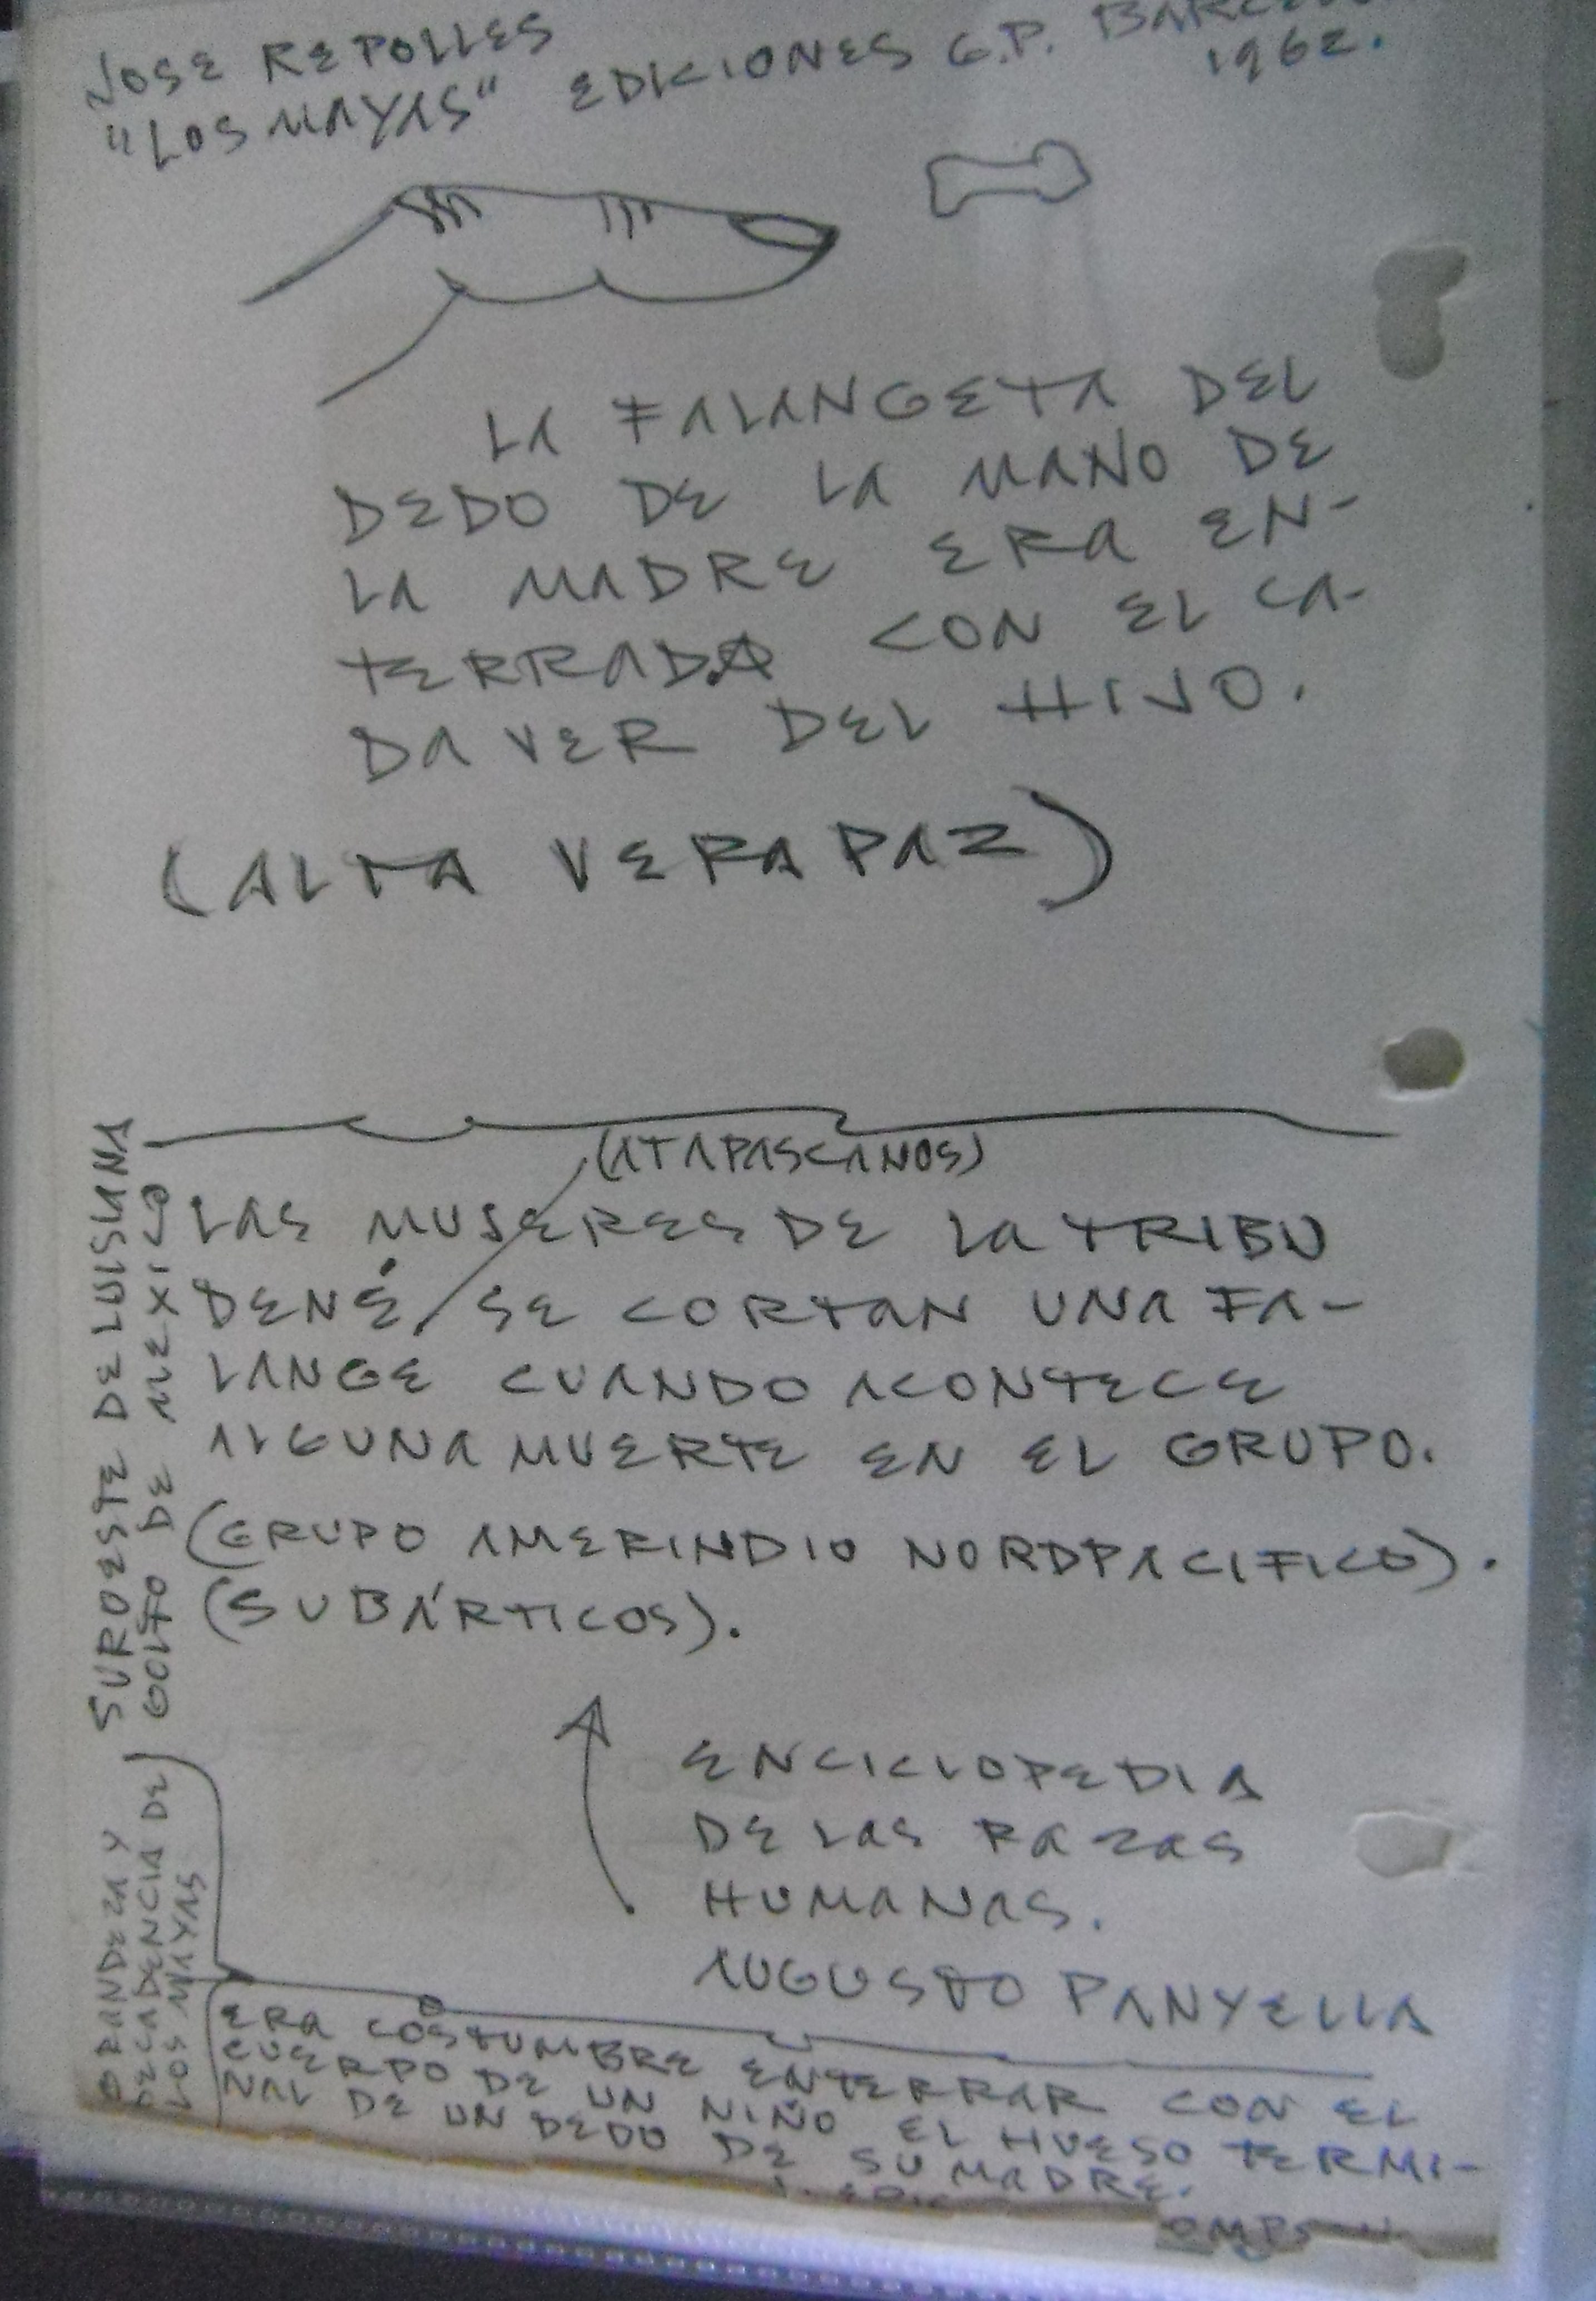 JOSE REPOLLES
"LOS MAYAS" EDICIONES G.P.
1962.
LA FALANGETA DEL
DEDO DE LA MANO DE
LA MADRE ERA EN-
TERRADA CON EL CA-
DAVER DEL HIJO.
(ALTA VERAPAZ)
(ATAPASCANOS)
LAS MUJERES DE LA TRIBU
DENÉ, SE CORTAN UNA FA-
LANGE CUANDO ACONTECE
ALGUNA MUERTE EN EL GRUPO.
(GRUPO AMERINDIO NORDPACIFICO).
(SUBÁRTICOS).
SUROESTE DE LUISIANA
GOLFO DE MEXICO
ENCICLOPEDIA
DE LAS RAZAS
HUMANAS.
AUGUSTO PANYELLA
GRANDEZA Y
DECADENCIA DE
LOS MAYAS
ERA COSTUMBRE ENTERRAR CON EL
CUERPO DE UN NIÑO EL HUESO TERMI-
NAL DE UN DEDO DE SU MADRE.